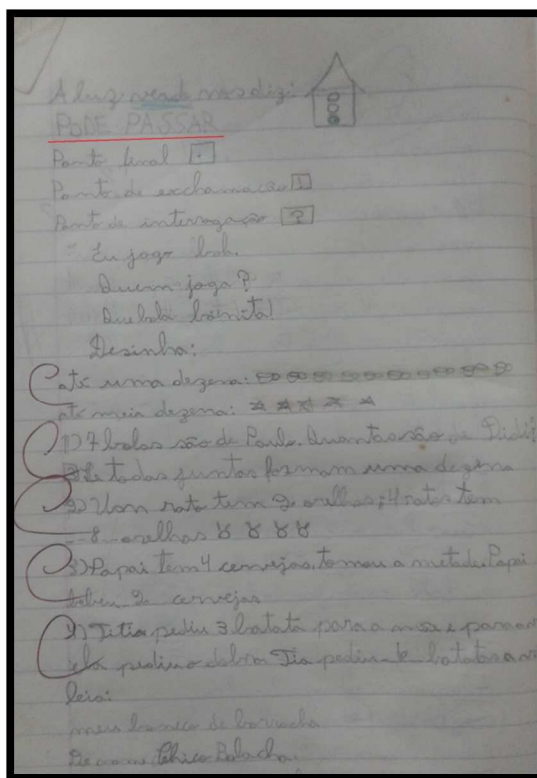 A luz verde nos diz:
PODE PASSAR
Ponto final .
Ponto de exchamação !
Ponto de interrogação ?
Eu jogo bola.
Quem joga?
Que bola bonita!
Desinha:
até uma dezena:
até meia dezena:
1) 7 balas são de Paulo. Quantas são de Didi?
e todas juntas formam uma dezena
2) Um rato tem 2 orelhas; 4 ratos tem
8 orelhas
3) Papai tem 4 cervejas, tomou a metade Papai
bebeu 2 cervejas
Titia pediu 3 batata para a
pediu o dobro Tia pediu 6 batatas
leia:
meu boneco de borracha
De nome Chico Bolacha.